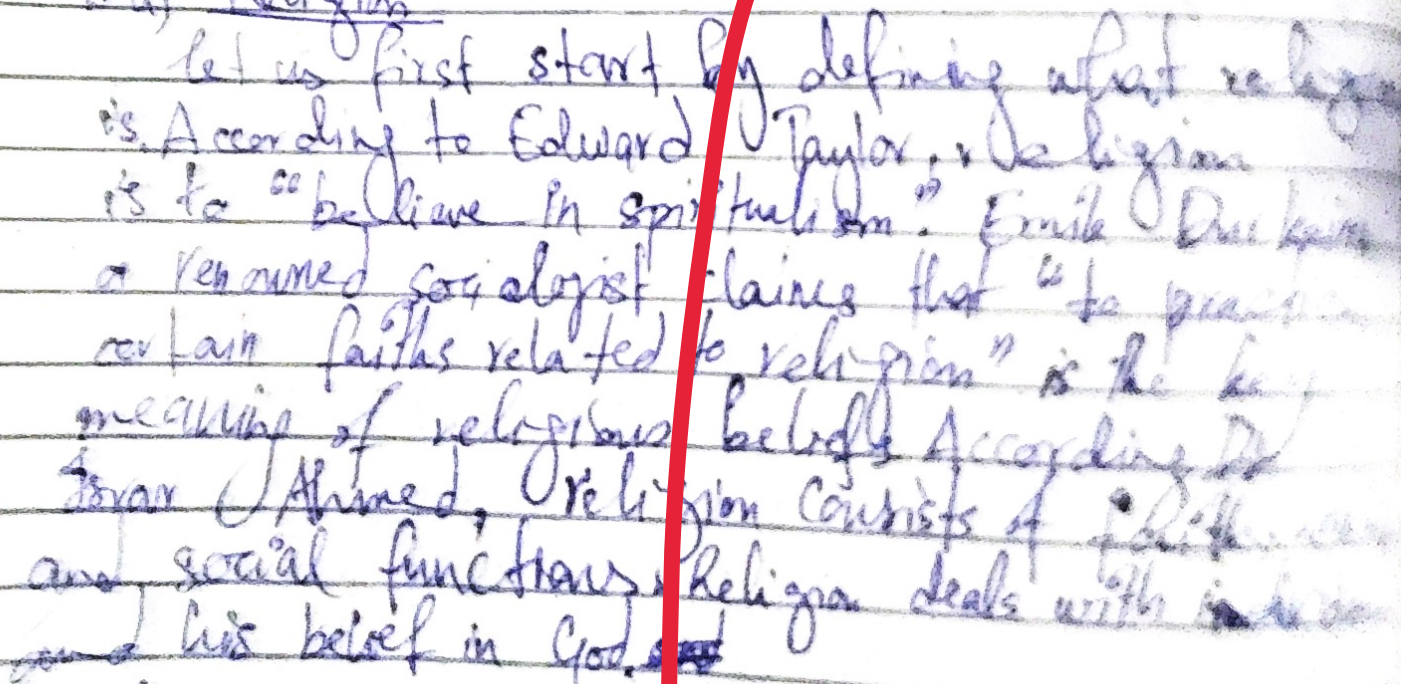 Religion
let us first start by defining what
is. According to Edward Taylor, religion
is to "believe in spiritualism". Emile Durkeim
a renowned sociologist claims that "to
certain faiths related to religion" is the key
meaning of religious beliefs According Dr
Israr Ahmed, religion consists of faith
and social functions. Religion deals with
his belief in God.